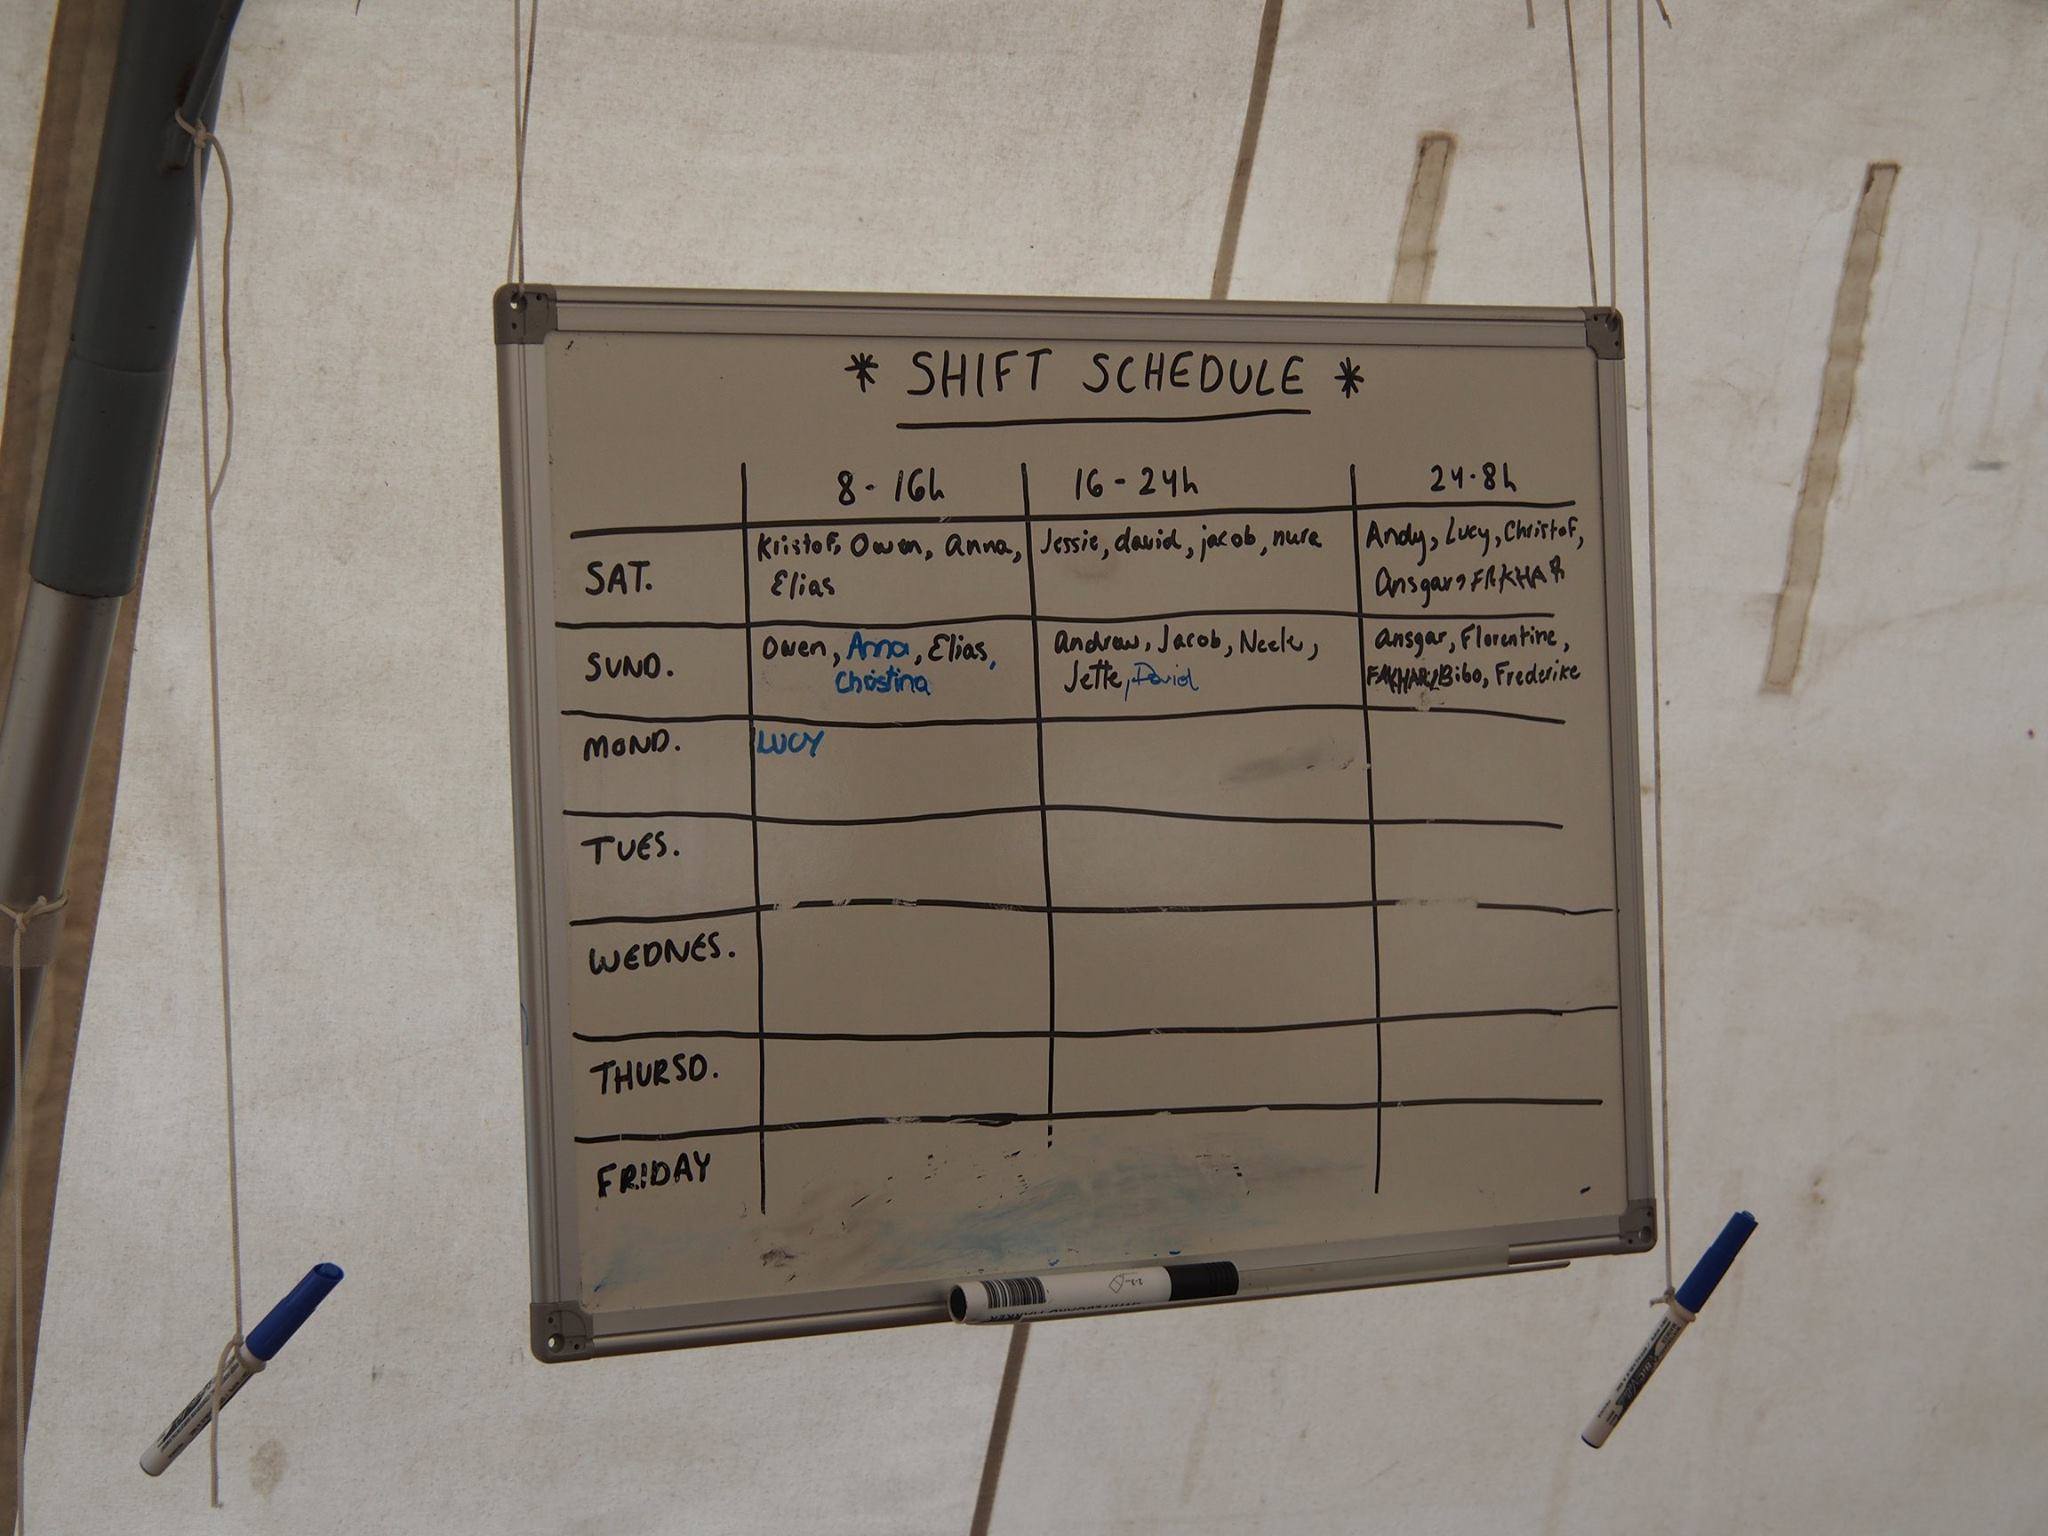 * SHIFT SCHEDULE *
8-16h
16-24h
24-8h
SAT.
Kristof, Owen, Anna,
Elias
Jessie, david, jacob, nura
Andy, Lucy, Christof,
Ansgar, FAKHAR
SUND.
Owen, Anna, Elias,
Christina
Andrew, Jacob, Neele,
Jette, David
ansgar, Florentine,
FAKHAR, Bibo, Frederike
MOND.
LUCY
TUES.
WEDNES.
THURSD.
FRIDAY